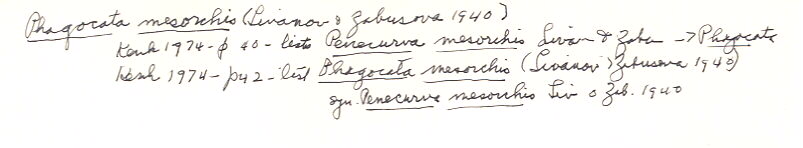 Phagocata mesorchis (Livanov & Zabusova 1940)
Kenk 1974 - p 40 - lists Penecurva mesorchis Livan & Zabu -> Phagocata
Kenk 1974 - p42 - list Phagocata mesorchis (Livanov & Zabusova 1940)
syn. Penecurva mesorchis Liv & Zab. 1940